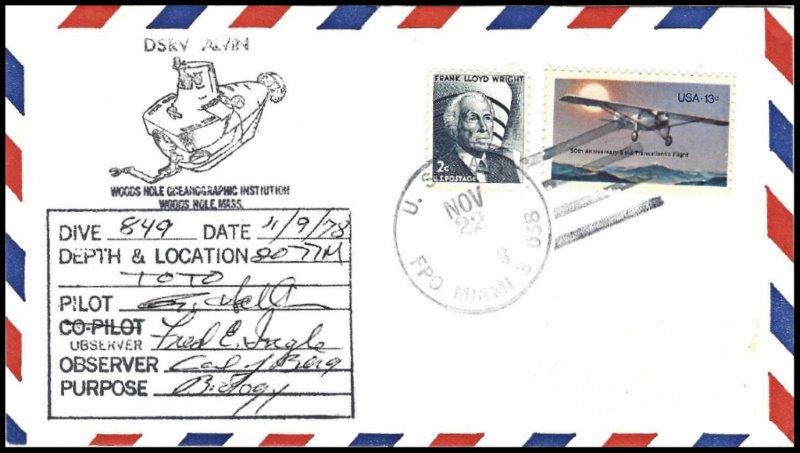 DSRV ALVIN
WOODS HOLE OCEANOGRAPHIC INSTITUTION
WOODS HOLE, MASS.
DIVE 849 DATE 11/9/78
DEPTH & LOCATION 2077M
TOTO
PILOT
CO-PILOT
OBSERVER Fred E. Ingle
OBSERVER Carl J Berg
PURPOSE Biology
FRANK LLOYD WRIGHT
2c
U.S. POSTAGE
USA·13c
50th Anniversary Solo Transatlantic Flight
U. S.
NOV
22
8
FPO MIAMI 3 850